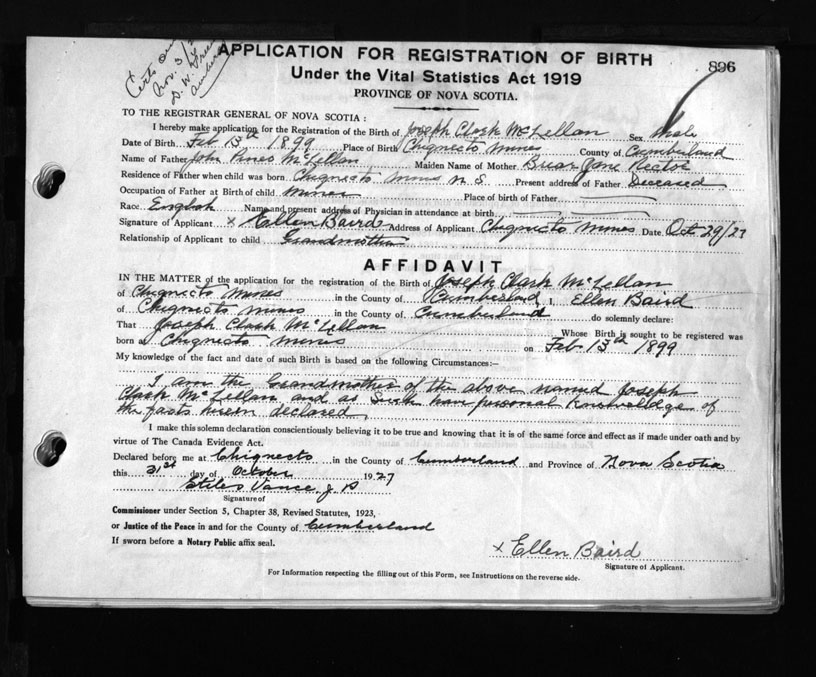 Certs
Nov. 3/2
D. W.
APPLICATION FOR REGISTRATION OF BIRTH
896
Under the Vital Statistics Act 1919
PROVINCE OF NOVA SCOTIA.
TO THE REGISTRAR GENERAL OF NOVA SCOTIA :
I hereby make application for the Registration of the Birth of Joseph Clark McLellan Sex Male
Date of Birth Feb 13th 1899 Place of Birth Chignecto Mines County of Cumberland
Name of Father John McLellan Maiden Name of Mother Jane Rector
Residence of Father when child was born Chignecto Mines N S Present address of Father Deceased
Occupation of Father at Birth of child Miner Place of Birth of Father
Race English Name and present address of Physician in attendance at birth
Signature of Applicant x Ellen Baird Address of Applicant Chignecto Mines Date Oct 29/27
Relationship of Applicant to child Grandmother
AFFIDAVIT
IN THE MATTER of the application for the registration of the Birth of Joseph Clark McLellan
of Chignecto Mines in the County of Cumberland, I, Ellen Baird
of Chignecto Mines in the County of Cumberland do solemnly declare:
That Joseph Clark McLellan Whose Birth is sought to be registered was
born at Chignecto Mines on Feb 13th 1899
My knowledge of the fact and date of such Birth is based on the following Circumstances:—
I am the Grandmother of the above named Joseph
Clark McLellan and as such have personal Knowledge of
the facts herein declared.
I make this solemn declaration conscientiously believing it to be true and knowing that it is of the same force and effect as if made under oath and by
virtue of The Canada Evidence Act.
Declared before me at Chignecto in the County of Cumberland and Province of Nova Scotia
this 31st day of October 1927
Stiles Vance, J P
Signature of
Commissioner under Section 5, Chapter 38, Revised Statutes, 1923,
or Justice of the Peace in and for the County of Cumberland
If sworn before a Notary Public affix seal.
x Ellen Baird
Signature of Applicant.
For Information respecting the filling out of this Form, see Instructions on the reverse side.